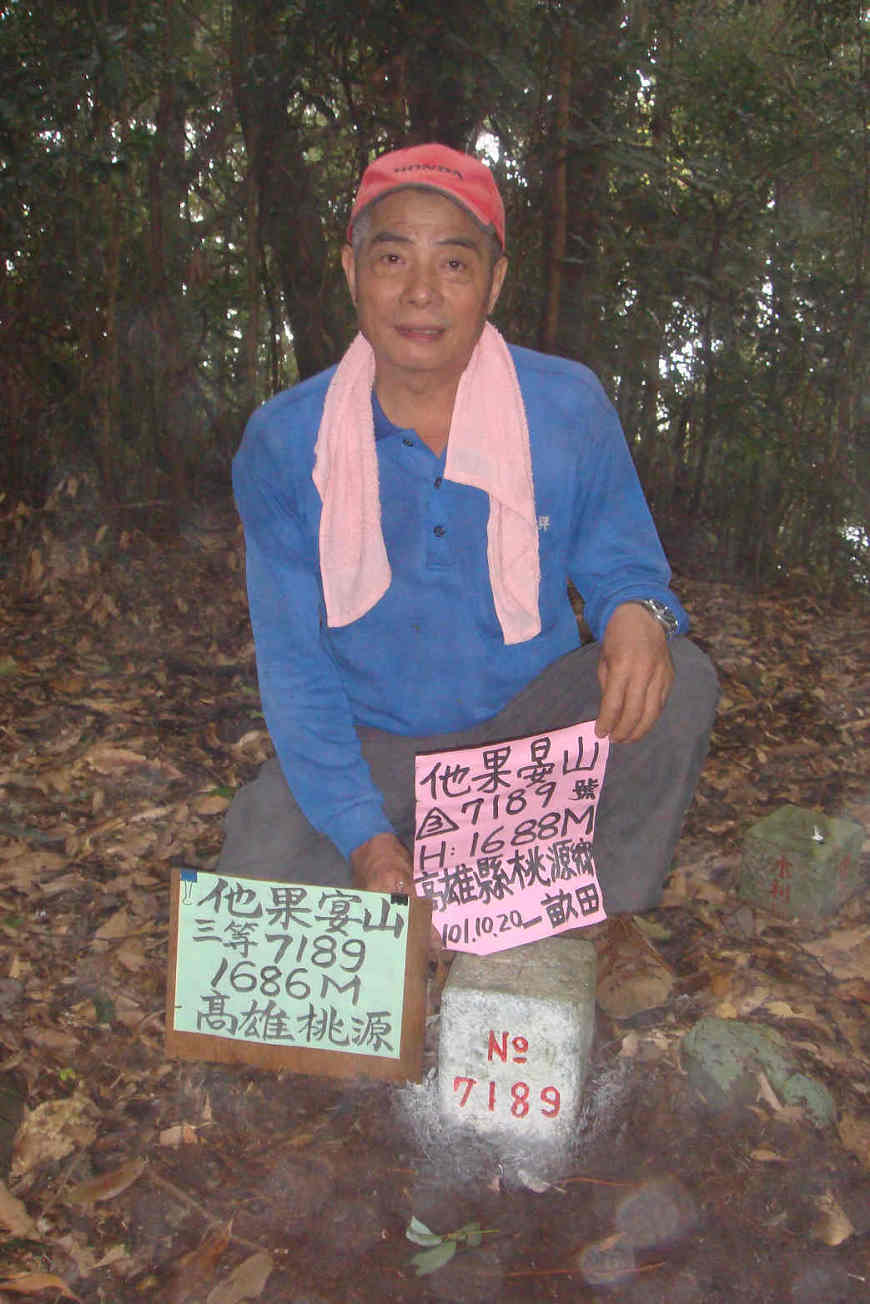 HONDA
祥
他果晏山
△3 7189號
H:1688M
高雄縣桃源鄉
101.10.20 一畝田
他果宴山
三等7189
1686M
高雄桃源
No
7189
水利